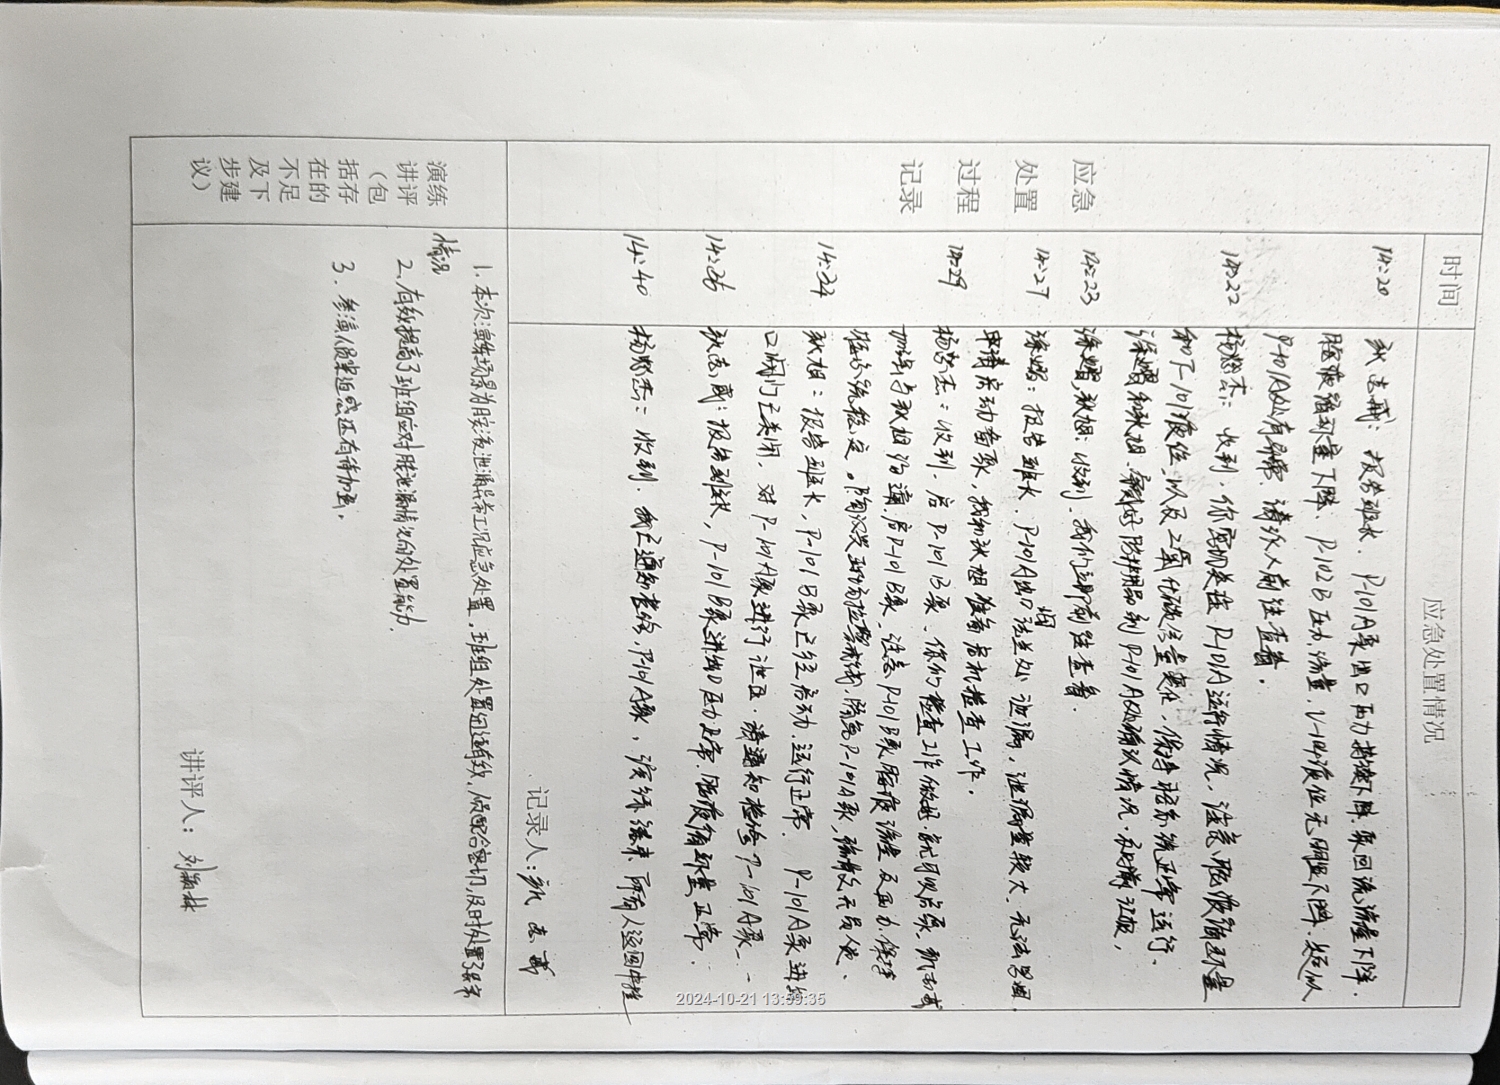 时间 应急处置情况
应急
处置
过程
记录
14:20 志戒：报告班长，P-101A泵出口压力持续下降，泵回流流量下降，
胺液循环量下降，P-102B压力，流量，V-104液位无明显下降，
P-101A处有异常，请派人前往查看。
14:22 杨 杰：收到，你密切关注P-101A运行情况，注意胺液循环量
和T-101液位，以及二氧化碳含量变化，保持 系统正常运行，
徐 和秋旭，穿戴好防护用品到P-101A处确认情况，
14:23 徐 ，秋旭：收到，我们立即前往查看。
14:27 徐 ：报告班长，P-101A出口法兰处泄漏，泄漏量较大，无法
申请启动备泵，我和秋旭准备启机检查工作。
14:29 杨 杰：收到，启P-101B泵，你们检查工作做好，就可以启泵，
与秋旭沟通，启P-101B泵，注意P-101B泵胺液流量及压力，保持
系统稳定。
14:34 秋旭：报告班长，P-101B泵已经启动，运行正常，P-101A泵进出
口阀门已关闭，对P-101A泵进行泄压，请通知检修P-101A泵
14:36 志戒：报告班长，P-101B泵进出口压力正常，胺液循环量正常。
14:40 杨 杰：收到，我已通知检修P-101A泵，演练结束，所有人返回中控
记录人： 志戒
演练
讲评
（包
括存
在的
不足
及下
步建
议）
1. 本次演练场景为胺液泄漏异常工况应急处置，班组处置 ，配合密切，及时处置了异常
情况
2. 有效提高了班组应对胺液泄漏情况的处置能力。
3. 参演人员紧迫感还有待加强。
讲评人：刘 林
2024-10-21 13:59:35